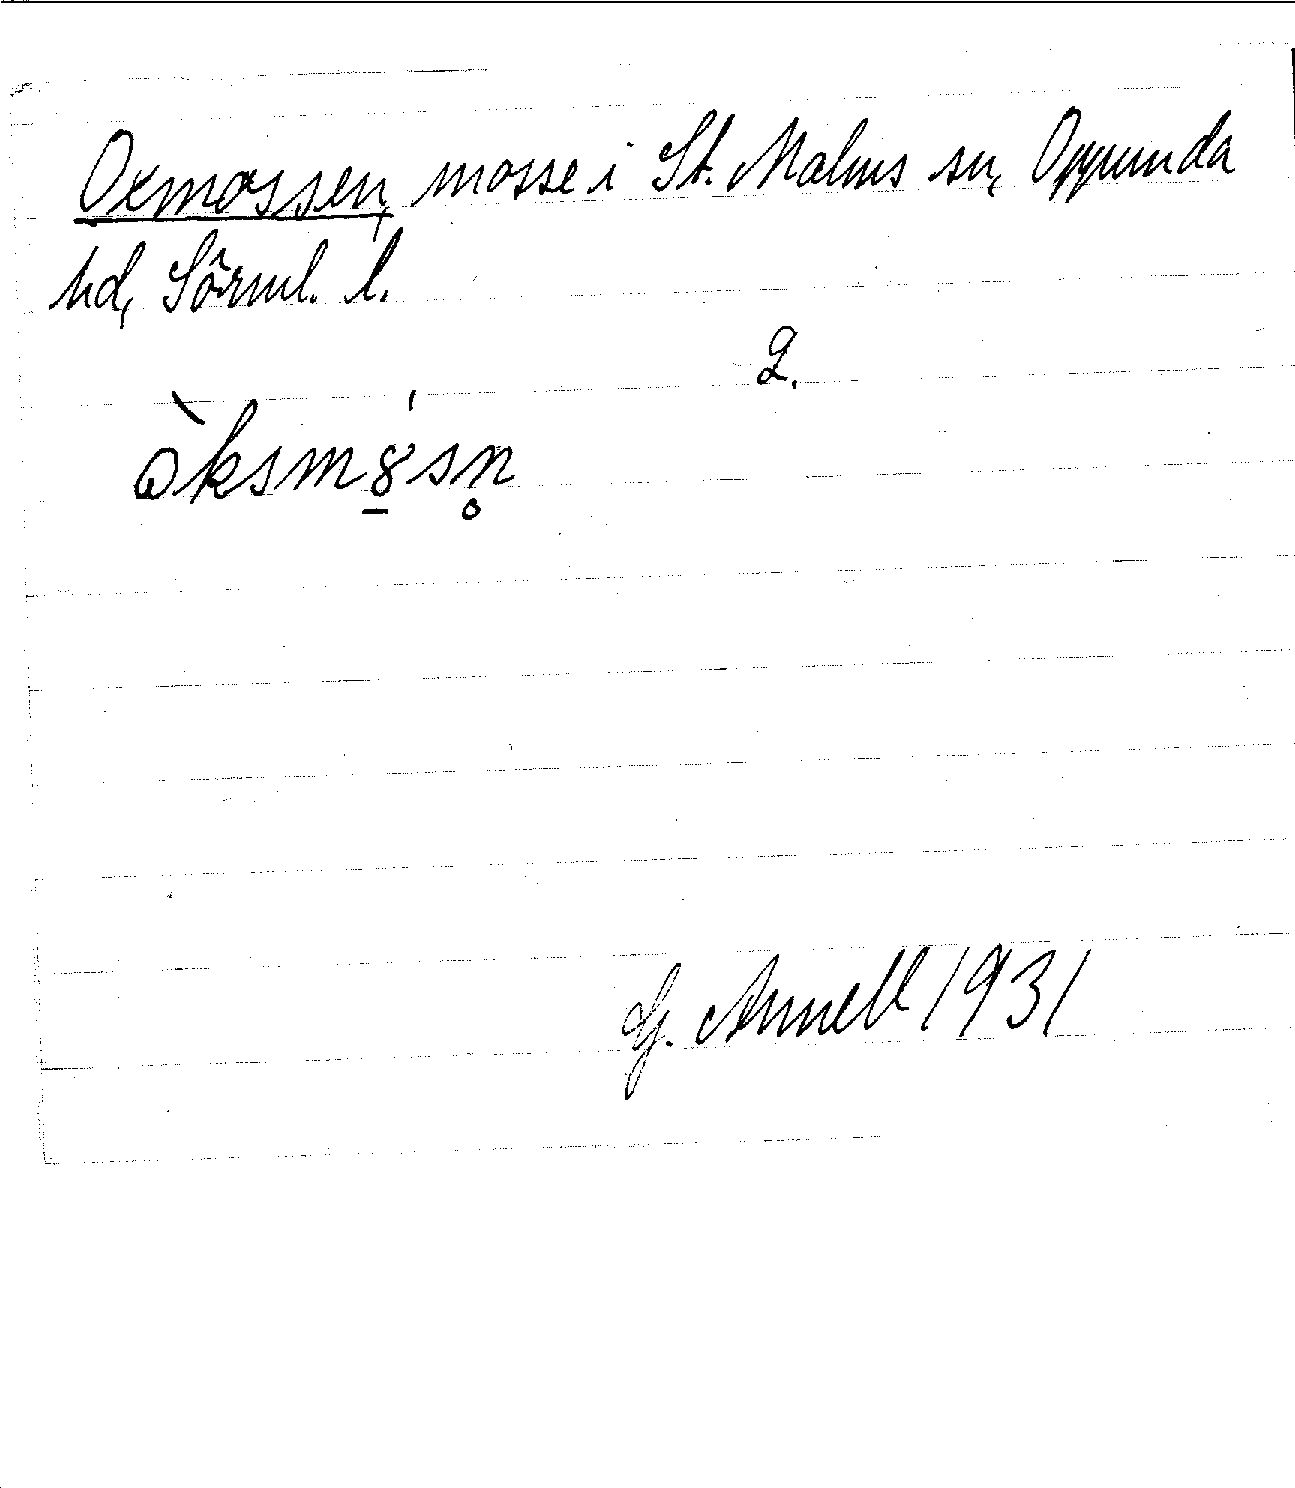 Oxmossen, mosse i St. Malms sn, Oppunda
hd, Sörml. l.
2.
G. Annell 1931